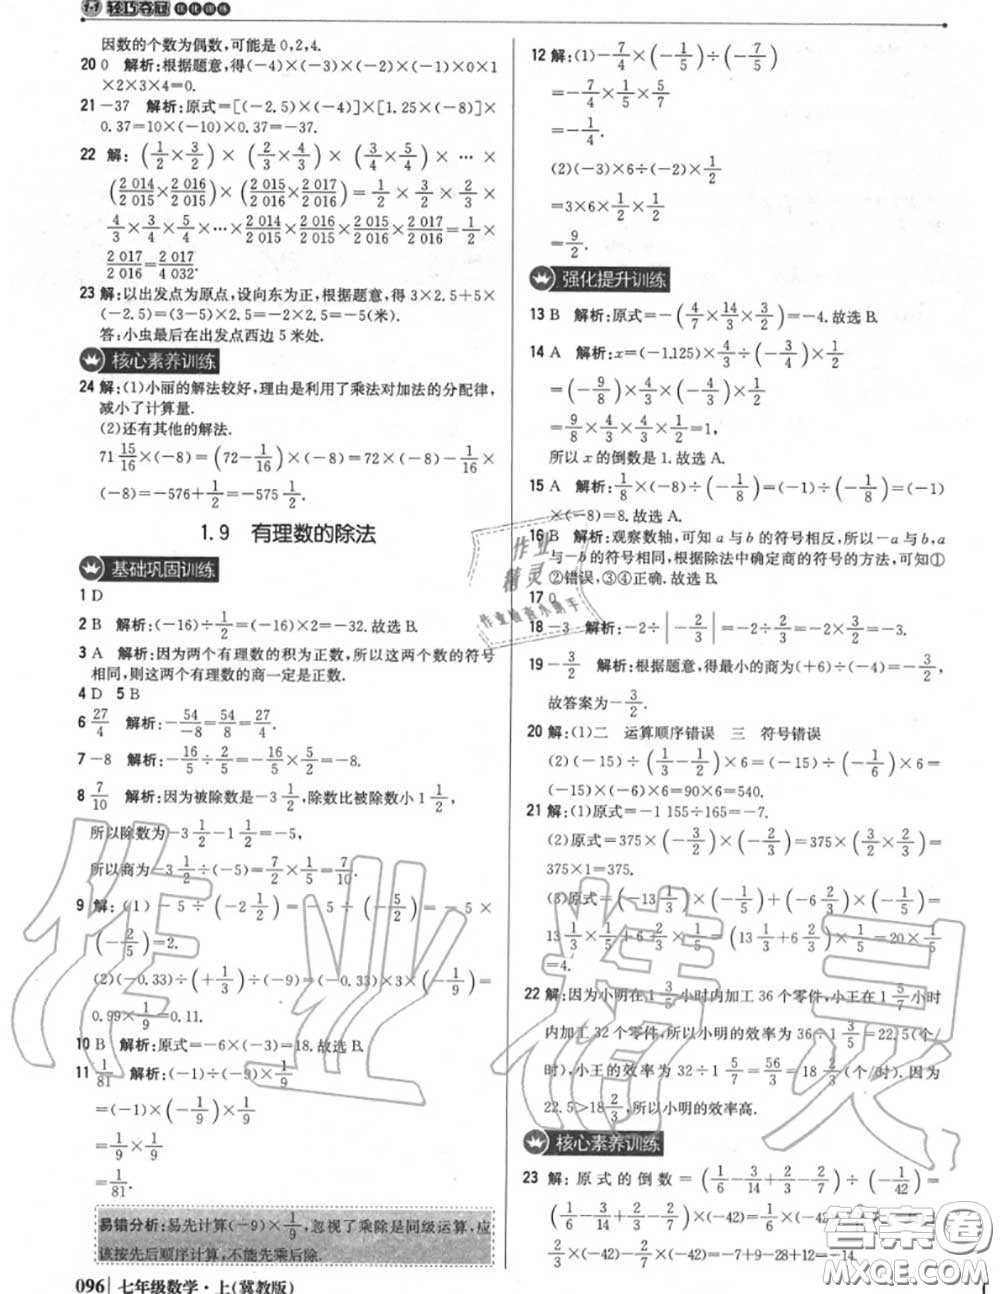 1+1 轻巧夺冠 优化训练
因数的个数为偶数,可能是0,2,4.
20 0 解析:根据题意,得(-4)×(-3)×(-2)×(-1)×0×1
×2×3×4=0.
21 -37 解析:原式=[(-2.5)×(-4)]×[1.25×(-8)]×
0.37=10×(-10)×0.37=-37.
22 解: (1/2×3/2) × (2/3×4/3) × (3/4×5/4) × … ×
(2 014/2 015×2 016/2 015)×(2 015/2 016×2 017/2 016)=1/2×3/2×2/3×
4/3×3/4×5/4×…×2 014/2 015×2 016/2 015×2 015/2 016×2 017/2 016=1/2×
2 017/2 016=2 017/4 032.
23 解:以出发点为原点,设向东为正,根据题意,得3×2.5+5×
(-2.5)=(3-5)×2.5=-2×2.5=-5(米).
答:小虫最后在出发点西边5米处.
核心素养训练
24 解:(1)小丽的解法较好,理由是利用了乘法对加法的分配律,
减小了计算量.
(2)还有其他的解法.
71 15/16×(-8)=(72-1/16)×(-8)=72×(-8)-1/16×
(-8)=-576+1/2=-575 1/2.
1.9 有理数的除法
基础巩固训练
1 D
2 B 解析:(-16)÷1/2=(-16)×2=-32.故选B.
3 A 解析:因为两个有理数的积为正数,所以这两个数的符号
相同,则这两个有理数的商一定是正数.
4 D 5 B
6 27/4 解析:-54/-8=54/8=27/4.
7 -8 解析:-16/5÷2/5=-16/5×5/2=-8.
8 7/10 解析:因为被除数是-3 1/2,除数比被除数小1 1/2,
所以除数为-3 1/2-1 1/2=-5,
所以商为-3 1/2÷(-5)=7/2×1/5=7/10.
9 解:(1)-5÷(-2 1/2)=-5÷(-5/2)=-5×
(-2/5)=2.
(2)(-0.33)÷(+1/3)÷(-9)=(-0.33)×3×(-1/9)=
0.99×1/9=0.11.
10 B 解析:原式=-6×(-3)=18.故选B.
11 1/81 解析:(-1)÷(-9)×1/9
=(-1)×(-1/9)×1/9
=1/9×1/9
=1/81.
易错分析:易先计算(-9)×1/9,忽视了乘除是同级运算,应
该按先后顺序计算,不能先乘后除.
096 七年级数学·上(冀教版)
12 解:(1)-7/4×(-1/5)÷(-7/5)
=-7/4×1/5×5/7
=-1/4.
(2)(-3)×6÷(-1/6)×1/2
=3×6×6×1/2
=9/2.
强化提升训练
13 B 解析:原式=-(4/7×14/3×3/2)=-4.故选B.
14 A 解析:x=(-1.125)×4/3÷(-3/4)×1/2
=(-9/8)×4/3×(-4/3)×1/2
=9/8×4/3×4/3×1/2=1,
所以x的倒数是1.故选A.
15 A 解析:1/8×(-8)÷(-1/8)=(-1)÷(-1/8)=(-1)
×(-8)=8.故选A.
16 B 解析:观察数轴,可知a与b的符号相反,所以-a与b,a
与-b的符号相同,根据除法中确定商的符号的方法,可知①
②错误,③④正确.故选B.
17 0
18 -3 解析:-2÷|-2/3|=-2÷2/3=-2×3/2=-3.
19 -3/2 解析:根据题意,得最小的商为(+6)÷(-4)=-3/2,
故答案为-3/2.
20 解:(1)二 运算顺序错误 三 符号错误
(2)(-15)÷(1/3-1/2)×6=(-15)÷(-1/6)×6=
(-15)×(-6)×6=90×6=540.
21 解:(1)原式=-1 155÷165=-7.
(2)原式=375×(-2/3)×(-3/2)=375×(2/3×3/2)=
375×1=375.
(3)原式=(-13 1/3)×(-1/5)+(-6 2/3)×(-1/5)=
13 1/3×1/5+6 2/3×1/5=(13 1/3+6 2/3)×1/5=20×1/5
=4.
22 解:因为小明在1 3/5小时内加工36个零件,小王在1 5/7小时
内加工32个零件,所以小明的效率为36÷1 3/5=22.5(个/
时),小王的效率为32÷1 5/7=56/3=18 2/3(个/时).因为
22.5>18 2/3,所以小明的效率高.
核心素养训练
23 解:原式的倒数=(1/6-3/14+2/3-2/7)÷(-1/42)=
(1/6-3/14+2/3-2/7)×(-42)=1/6×(-42)-3/14×
(-42)+2/3×(-42)-2/7×(-42)=-7+9-28+12=
作业
精灵
作业检查小助手
作业精灵
答案圈
MXQE.COM